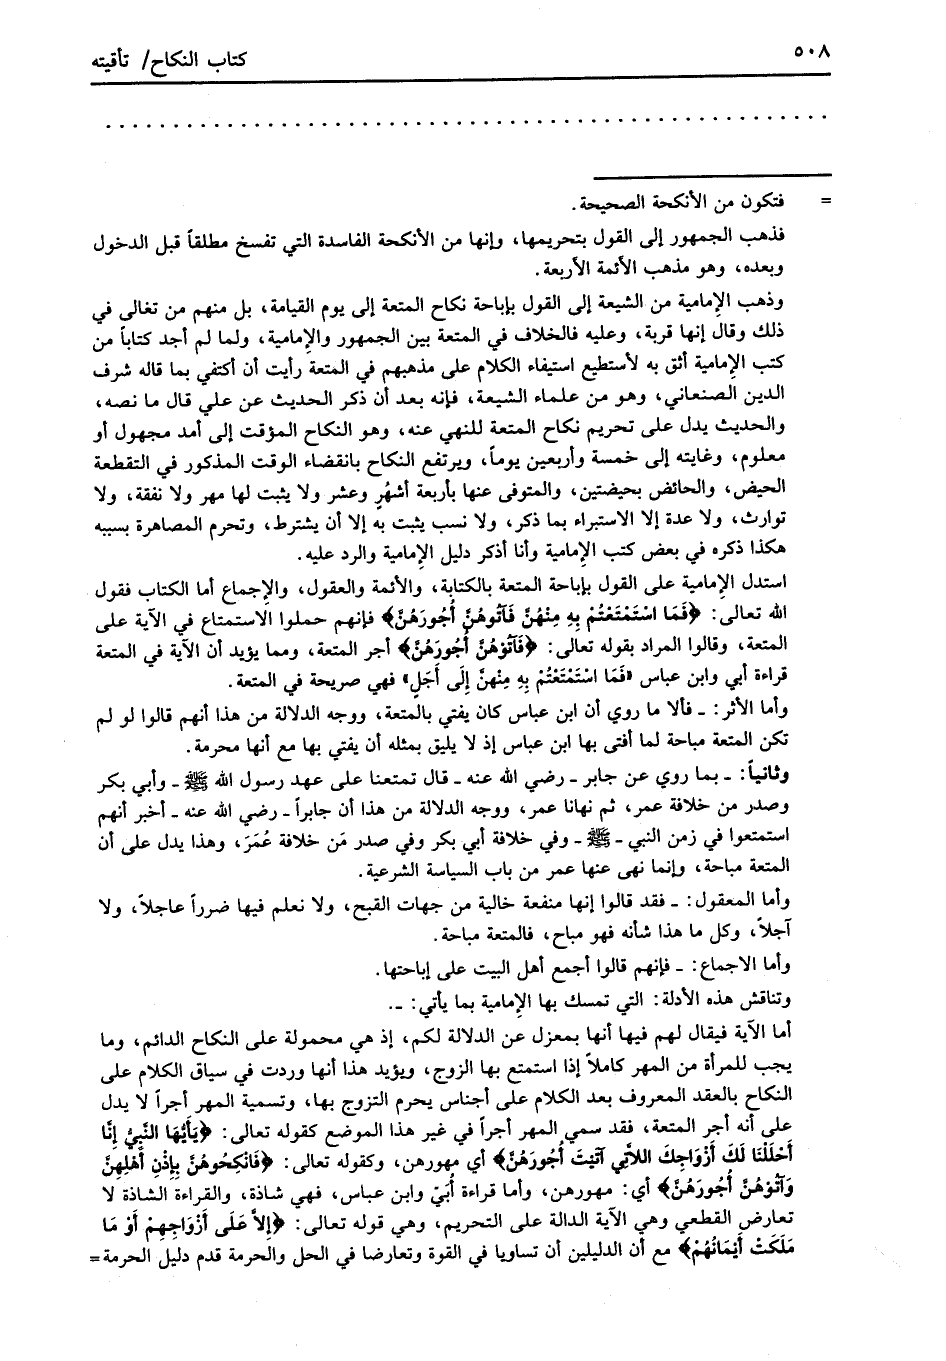 ٥٠٨
كتاب النكاح/ تأقيته
= فتكون من الأنكحة الصحيحة.
فذهب الجمهور إلى القول بتحريمها، وإنها من الأنكحة الفاسدة التي تفسخ مطلقاً قبل الدخول
وبعده، وهو مذهب الأئمة الأربعة.
وذهب الإمامية من الشيعة إلى القول بإباحة نكاح المتعة إلى يوم القيامة، بل منهم من تغالى في
ذلك وقال إنها قربة، وعليه فالخلاف في المتعة بين الجمهور والإمامية، ولما لم أجد كتاباً من
كتب الإمامية أثق به لأستطيع استيفاء الكلام على مذهبهم في المتعة رأيت أن أكتفي بما قاله شرف
الدين الصنعاني، وهو من علماء الشيعة، فإنه بعد أن ذكر الحديث عن علي قال ما نصه،
والحديث يدل على تحريم نكاح المتعة للنهي عنه، وهو النكاح المؤقت إلى أمد مجهول أو
معلوم، وغايته إلى خمسة وأربعين يوماً، ويرتفع النكاح بانقضاء الوقت المذكور في التقطعة
الحيض، والحائض بحيضتين، والمتوفى عنها بأربعة أشهُرٍ وعشر ولا يثبت لها مهر ولا نفقة، ولا
توارث، ولا عدة إلا الاستبراء بما ذكر، ولا نسب يثبت به إلا أن يشترط، وتحرم المصاهرة بسببه
هكذا ذكره في بعض كتب الإمامية وأنا أذكر دليل الإمامية والرد عليه.
استدل الإمامية على القول بإباحة المتعة بالكتابة، والأئمة والعقول، والإجماع أما الكتاب فقول
الله تعالى: ﴿فَمَا اسْتَمْتَعْتُمْ بِهِ مِنْهُنَّ فَآتُوهُنَّ أُجُورَهُنَّ﴾ فإنهم حملوا الاستمتاع في الآية على
المتعة، وقالوا المراد بقوله تعالى: ﴿فَآتُوْهُنَّ أُجُورَهُنَّ﴾ أجر المتعة، ومما يؤيد أن الآية في المتعة
قراءة أبي وابن عباس «فَمَا اسْتَمْتَعْتُمْ بِهِ مِنْهنَّ إِلَى أَجَلٍ» فهي صريحة في المتعة.
وأما الأثر: ـ فألا ما روي أن ابن عباس كان يفتي بالمتعة، ووجه الدلالة من هذا أنهم قالوا لو لم
تكن المتعة مباحة لما أفتى بها ابن عباس إذ لا يليق بمثله أن يفتي بها مع أنها محرمة.
وثانياً: ـ بما روي عن جابر ـ رضي الله عنه ـ قال تمتعنا على عهد رسول الله ﷺ ـ وأبي بكر
وصدر من خلافة عمر، ثم نهانا عمر، ووجه الدلالة من هذا أن جابراً ـ رضي الله عنه ـ أخبر أنهم
استمتعوا في زمن النبي ـ ﷺ ـ وفي خلافة أبي بكر وفي صدر مَن خلافة عُمَرَ، وهذا يدل على أن
المتعة مباحة، وإنما نهى عنها عمر من باب السياسة الشرعية.
وأما المعقول: ـ فقد قالوا إنها منفعة خالية من جهات القبح، ولا نعلم فيها ضرراً عاجلاً، ولا
آجلاً، وكل ما هذا شأنه فهو مباح، فالمتعة مباحة.
وأما الاجماع: ـ فإنهم قالوا أجمع أهل البيت على إباحتها.
وتناقش هذه الأدلة: التي تمسك بها الإمامية بما يأتي: ـ.
أما الآية فيقال لهم فيها أنها بمعزل عن الدلالة لكم، إذ هي محمولة على النكاح الدائم، وما
يجب للمرأة من المهر كاملاً إذا استمتع بها الزوج، ويؤيد هذا أنها وردت في سياق الكلام على
النكاح بالعقد المعروف بعد الكلام على أجناس يحرم التزوج بها، وتسمية المهر أجراً لا يدل
على أنه أجر المتعة، فقد سمي المهر أجراً في غير هذا الموضع كقوله تعالى: ﴿يَأَيُّهَا النَّبِيُّ إِنَّا
أَحْلَلْنَا لَكَ أَزْوَاجِكَ اللاَّتِي آتَيْتَ أُجُورَهُنَّ﴾ أي مهورهن، وكقوله تعالى: ﴿فَانْكِحُوهُنَّ بِإِذْنِ أَهْلِهِنَّ
وَآتُوْهُنَّ أُجُورَهُنَّ﴾ أي: مهورهن، وأما قراءة أُبَيّ وابن عباس، فهي شاذة، والقراءة الشاذة لا
تعارض القطعي وهي الآية الدالة على التحريم، وهي قوله تعالى: ﴿إِلاَّ عَلَى أَزْوَاجِهِمْ أَوْ مَا
مَلَكَتْ أَيْمَانُهُمْ﴾ مع أن الدليلين أن تساويا في القوة وتعارضا في الحل والحرمة قدم دليل الحرمة =